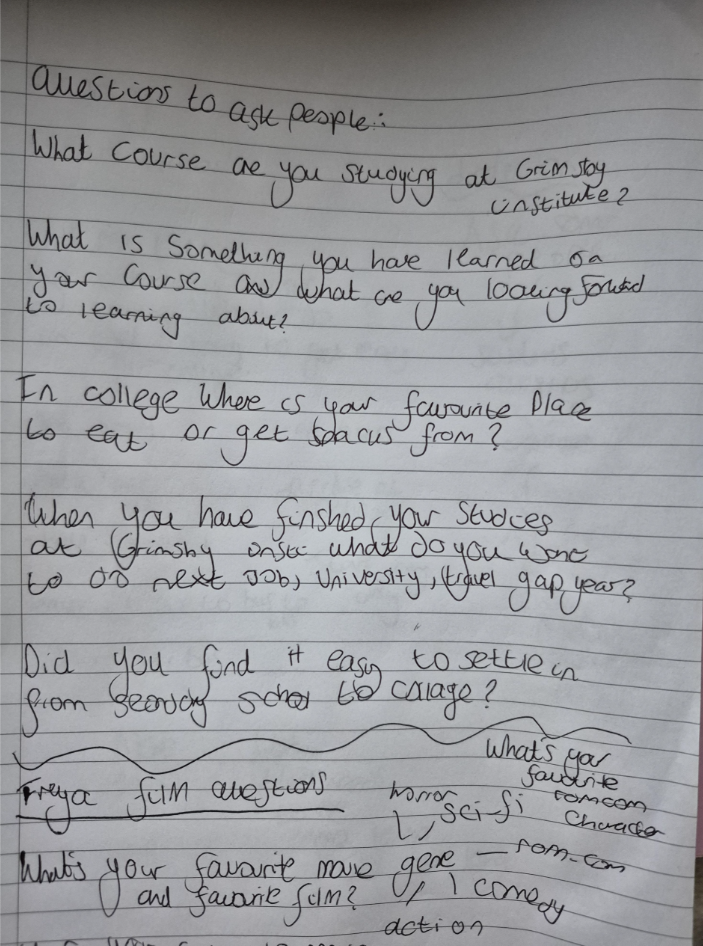 Questions to ask people:
What Course are you studying at Grimsby
institute?
What is Something you have learned on
your Course and what are you looking forward
to learning about?
In college Where is your favourite Place
to eat or get snacks from?
When you have finshed your studies
at Grimsby insti what do you want
to do next Job, University, travel gap year?
Did you find it easy to settle in
from to collage?
What's your
favourite
romcom
Character
Freya film questions
horror
sci-fi
What's your favourite movie gene — rom-com
and favorite film?
comedy
action